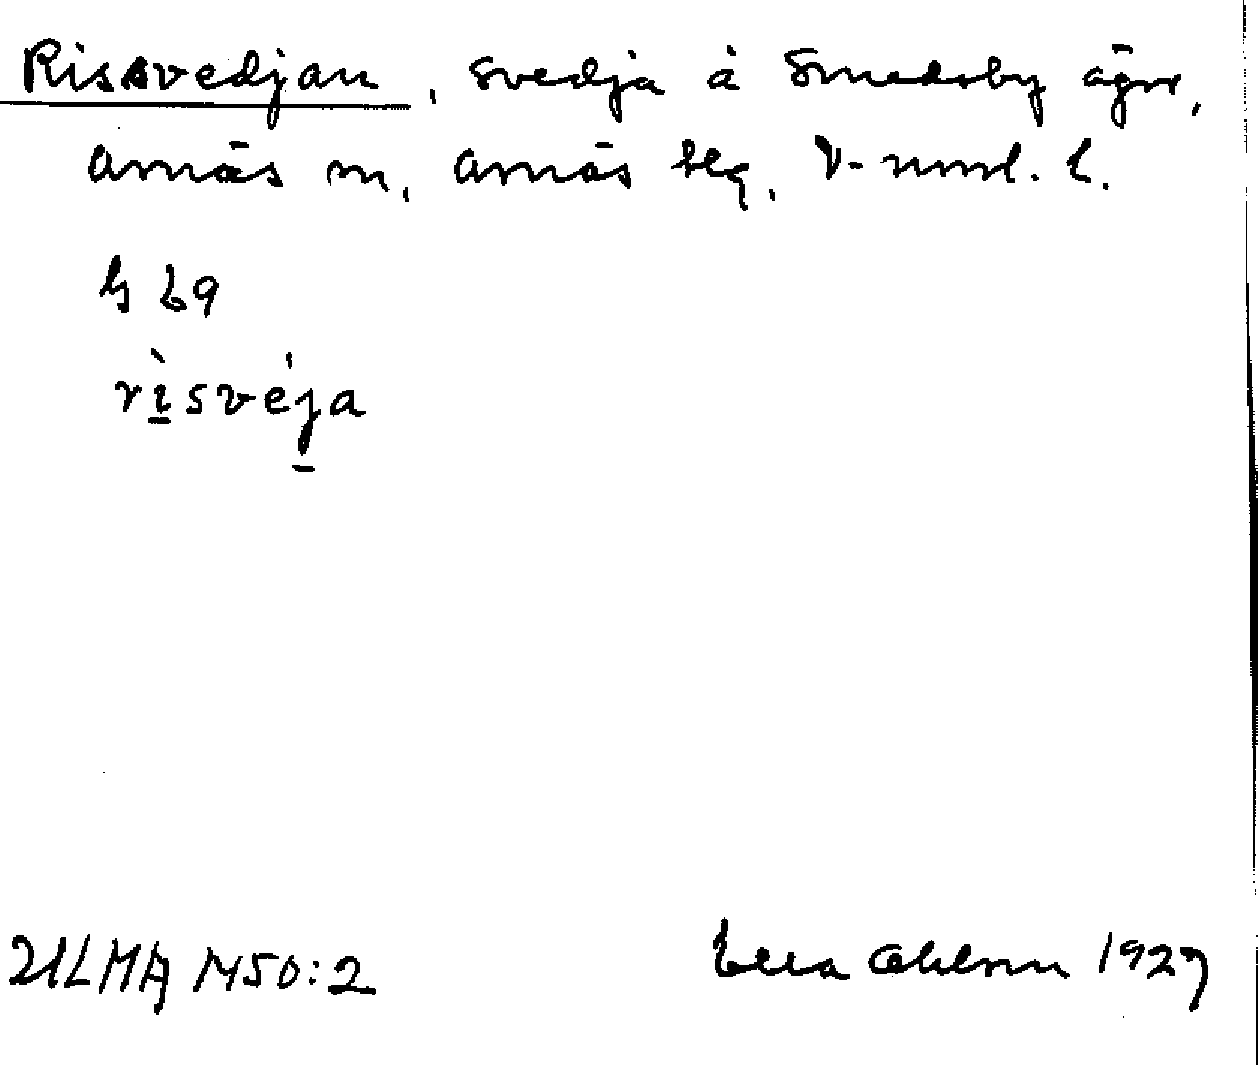 Rissvedjan, svedja å Smedsby ägor,
Arnäs sn, Arnäs tlg, V-nrrl. l.
b 69
rìsvéja
ULMA 1450:2
Ella Ohlson 1927